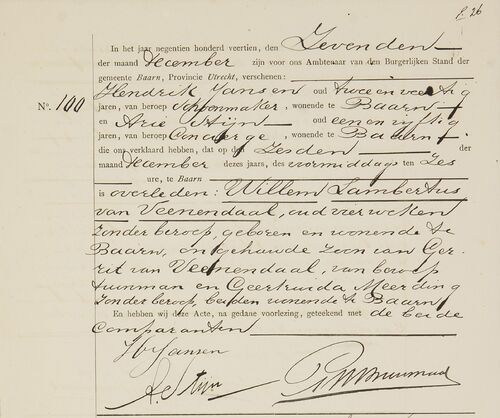 f. 26
In het jaar negentien honderd veertien, den Zevenden
der maand December zijn voor ons Ambtenaar van den Burgerlijken Stand der
gemeente Baarn, Provincie Utrecht, verschenen:
Hendrik Jansen oud twee en veertig
No. 100 jaren, van beroep schoenmaker, wonende te Baarn
en Arie Stijn oud een en vijftig
jaren, van beroep Concierge, wonende te Baarn,
die ons verklaard hebben, dat op den Zesden der
maand December dezes jaars, des voormiddags ten Zes
ure, te Baarn
is overleden: Willem Lambertus
van Veenendaal, oud vier weken
zonder beroep, geboren en wonende te
Baarn, ongehuwde zoon van Ger-
rit van Veenendaal, van beroep
tuinman en Geertruida Meerding
zonder beroep, beiden wonende te Baarn
En hebben wij deze Acte, na gedane voorlezing, geteekend met de beide
Comparanten
H Jansen
A. Stijn